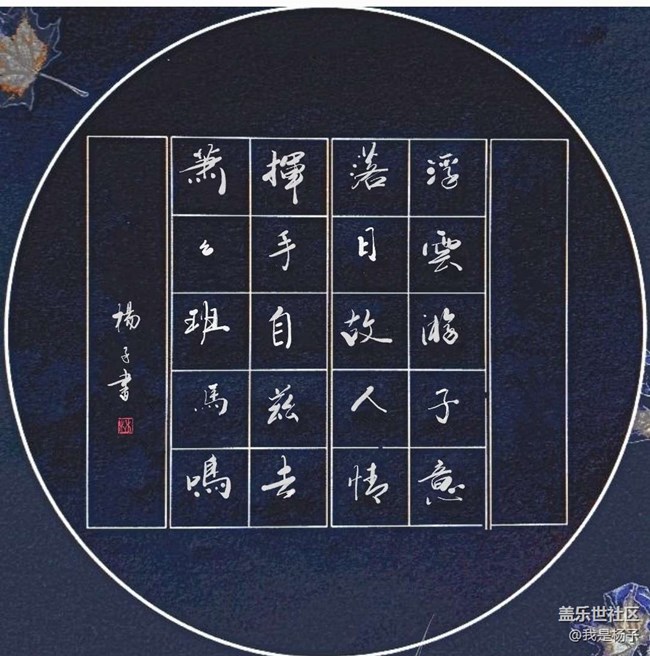 浮雲游子意
落日故人情
揮手自茲去
蕭〻班馬鳴
楊子書
盖乐世社区
@我是杨子